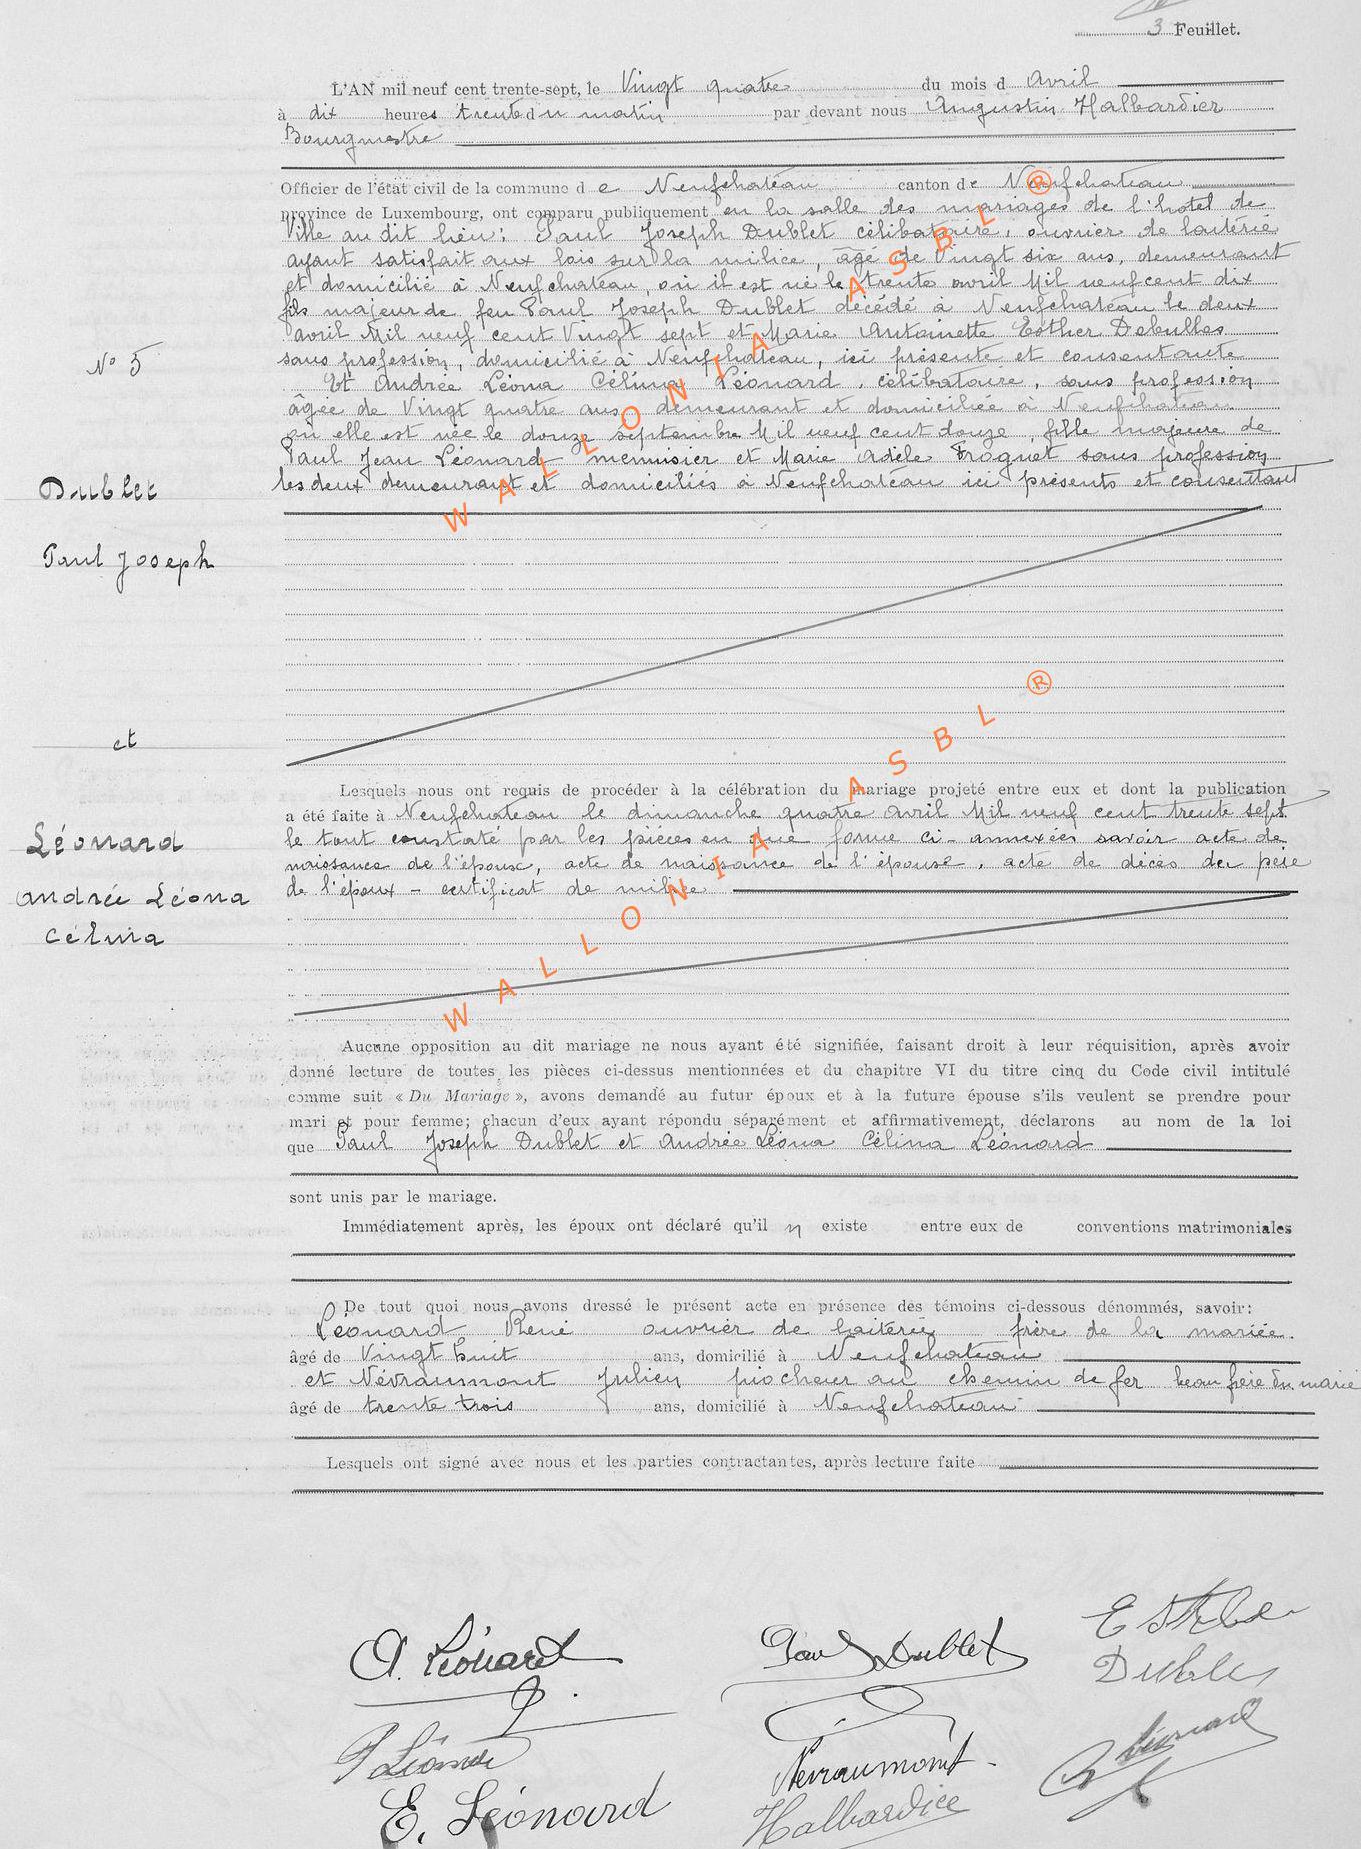 3 Feuillet.
L'AN mil neuf cent trente-sept, le Vingt quatre du mois d Avril
à dix heures trente du matin par devant nous Augustin Halbardier
Bourgmestre
Officier de l'état civil de la commune de Neufchateau canton de Neufchateau
province de Luxembourg, ont comparu publiquement en la salle des mariages de l'hotel de
Ville au dit lieu: Paul Joseph Dublet célibataire, ouvrier de laiterie
ayant satisfait aux lois sur la milice, âgé de Vingt six ans, demeurant
et domicilié à Neufchateau, où il est né le trente avril Mil neuf cent dix
fils majeur de feu Paul Joseph Dublet décédé à Neufchateau le deux
avril Mil neuf cent Vingt sept et Marie Antoinette Esther
sans profession, domicilié à Neufchateau, ici présente et consentante
Et Andrée Léona Célina Léonard, célibataire, sans profession
âgée de Vingt quatre ans demeurant et domiciliée à Neufchateau
où elle est née le douze septembre Mil neuf cent douze, fille majeure de
Paul Jean Léonard menuisier et Marie Adèle Froguet sans profession
les deux demeurant et domiciliés à Neufchateau ici présents et consentant
N° 5
Dublet
Paul Joseph
et
Léonard
Andrée Léona
Célina
Lesquels nous ont requis de procéder à la célébration du mariage projeté entre eux et dont la publication
a été faite à Neufchateau le dimanche quatre avril Mil neuf cent trente sept
le tout constaté par les pièces en due forme ci-annexées savoir acte de
naissance de l'époux, acte de naissance de l'épouse, acte de décès du père
de l'époux - certificat de milice
Aucune opposition au dit mariage ne nous ayant été signifiée, faisant droit à leur réquisition, après avoir
donné lecture de toutes les pièces ci-dessus mentionnées et du chapitre VI du titre cinq du Code civil intitulé
comme suit « Du Mariage », avons demandé au futur époux et à la future épouse s'ils veulent se prendre pour
mari et pour femme; chacun d'eux ayant répondu séparément et affirmativement, déclarons au nom de la loi
que Paul Joseph Dublet et Andrée Léona Célina Léonard
sont unis par le mariage.
Immédiatement après, les époux ont déclaré qu'il n existe entre eux de conventions matrimoniales
De tout quoi nous avons dressé le présent acte en présence des témoins ci-dessous dénommés, savoir:
Léonard René ouvrier de laiterie frère de la mariée
âgé de Vingt huit ans, domicilié à Neufchateau
et Névraumont Julien piocheur au chemin de fer beau frère du marié
âgé de trente trois ans, domicilié à Neufchateau
Lesquels ont signé avec nous et les parties contractantes, après lecture faite
A. Léonard
Paul Dublet
P Léonard
Nevraumont
Léonard
E. Léonard
Halbardier
WALLONIA ASBL ®
WALLONIA ASBL ®